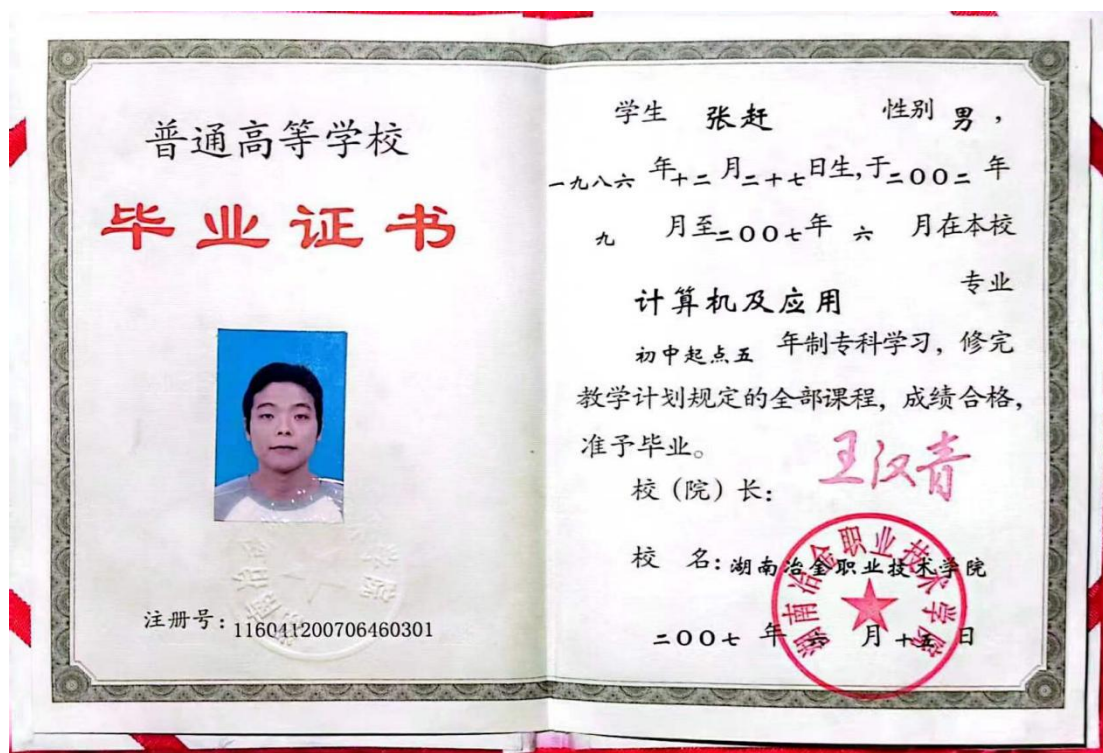 普通高等学校
毕业证书
注册号：116041200706460301
学生 张赶 性别 男，
一九八六 年十二月二十七日生,于二00二 年
九 月至二00七年 六 月在本校
计算机及应用 专业
初中起点五 年制专科学习，修完
教学计划规定的全部课程，成绩合格，
准予毕业。
校（院）长： 王汉青
校 名：湖南冶金职业技术学院
二00七 年 六 月 十五 日
湖南冶金职业技术学院